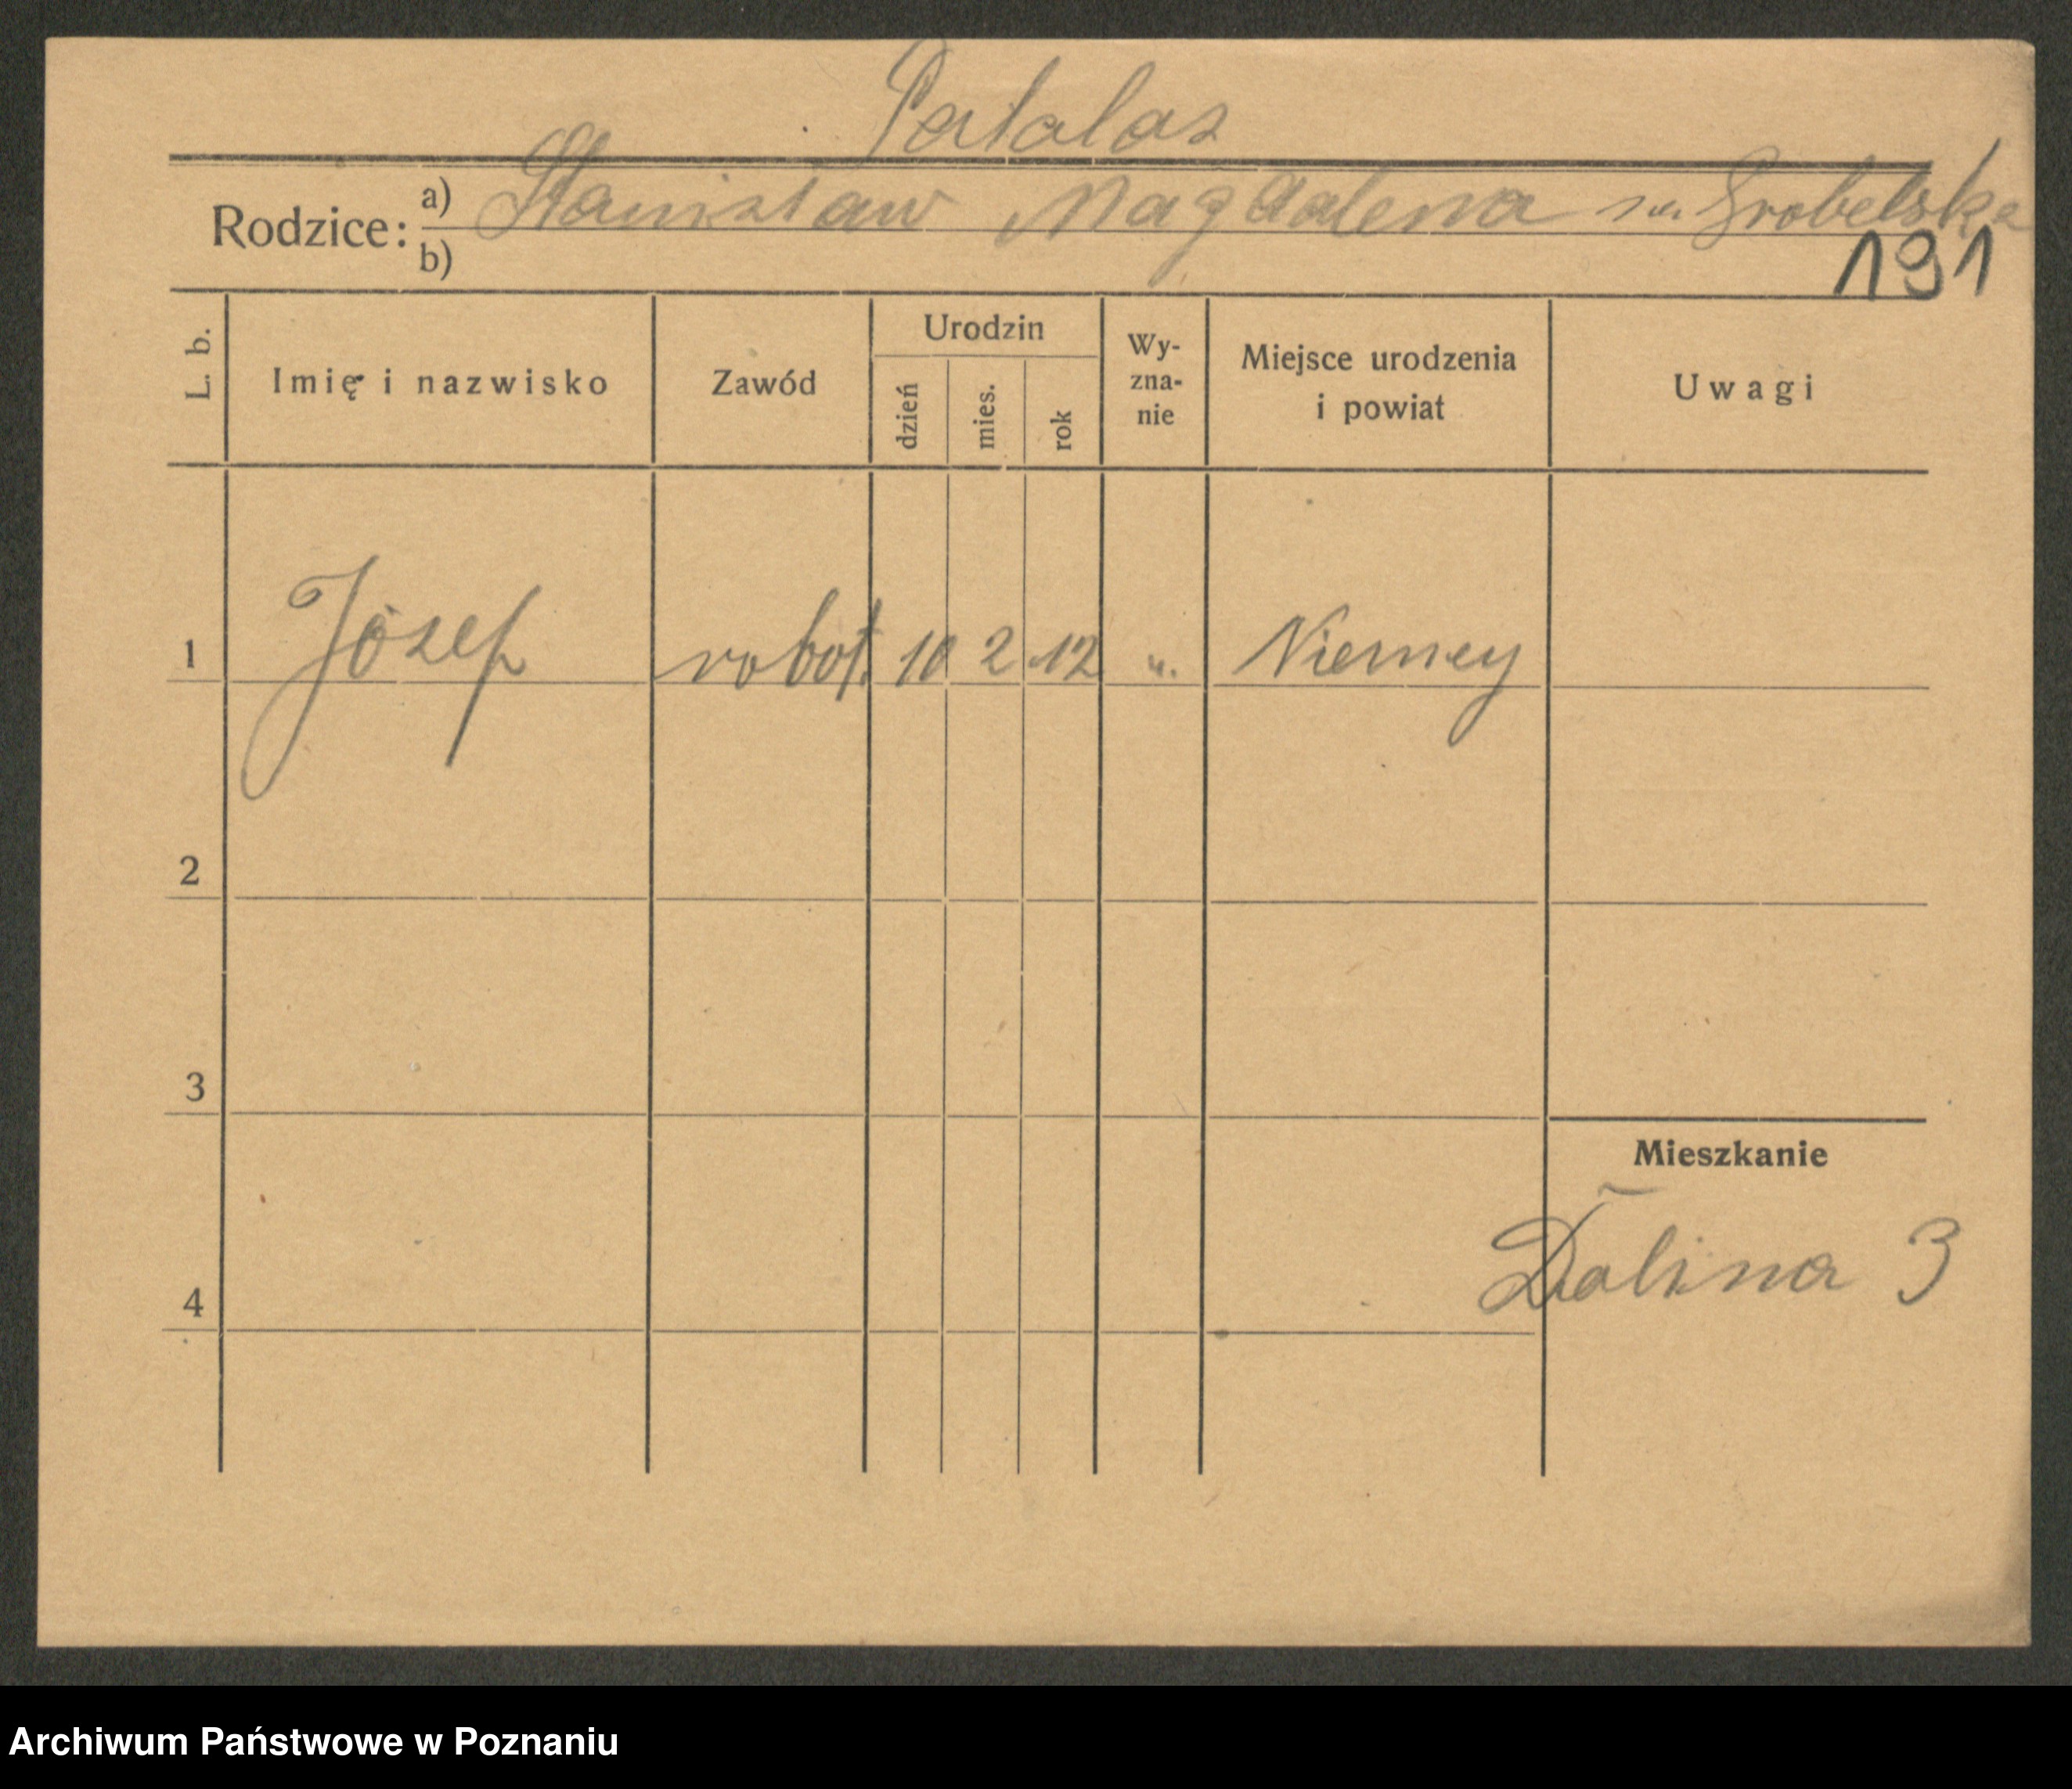 Patalas
Rodzice: a) Stanisław Magdalena Grobelska
b)
191
L. b. Imię i nazwisko Zawód Urodzin dzień mies. rok Wy-zna-nie Miejsce urodzenia i powiat Uwagi
1 Józef robot. 10 2 12 ". Niemcy
2
3
Mieszkanie
Dolina 3
4
Archiwum Państwowe w Poznaniu